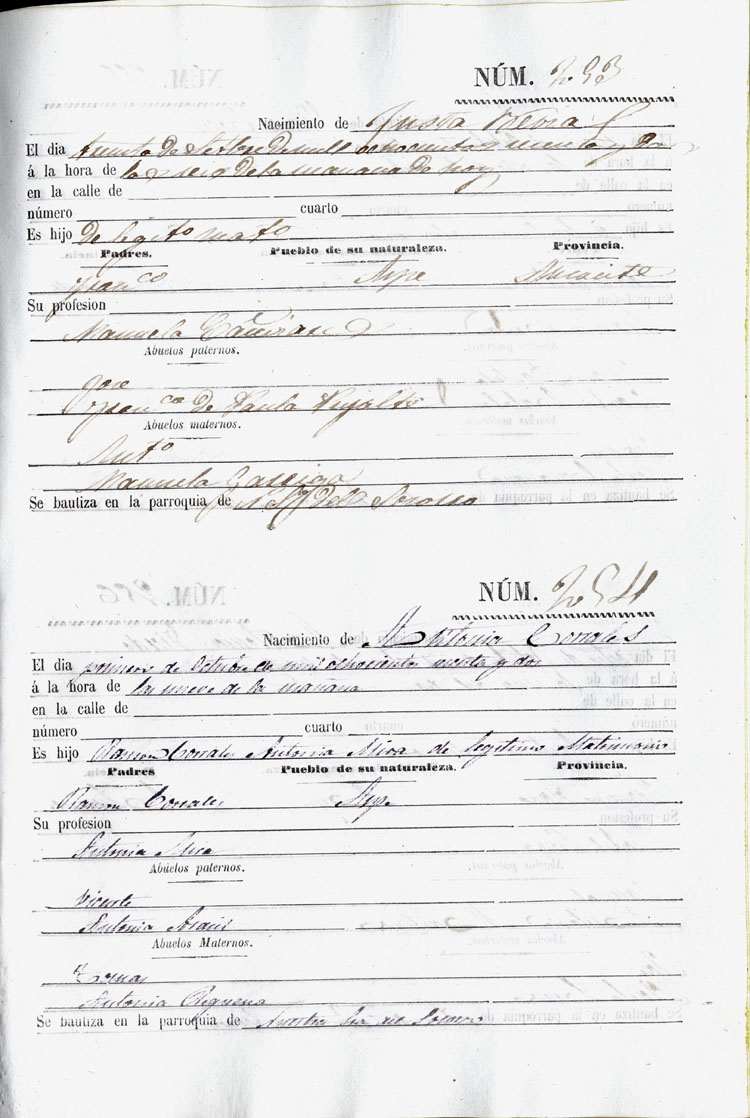 NÚM. 253
Nacimiento de Justa
El dia treinta de Setbre de mil ochocientos y dos
á la hora de las seis de la mañana de hoy
en la calle de
número cuarto
Es hijo de legito mato
Padres. Pueblo de su naturaleza. Provincia.
Franco Aspe Alicante
Su profesion
Manuela
Abuelos paternos.
Jose
Franca de Paula
Abuelos maternos.
Anto
Manuela
Se bautiza en la parroquia de N Sra del Socorro
NÚM. 254
Nacimiento de Antonia Corrales
El dia primero de Octubre de mil ochocientos y dos
á la hora de las nueve de la mañana
en la calle de
número cuarto
Es hijo Ramon Corrales Antonia Mira de legitimo Matrimonio
Padres Pueblo de su naturaleza. Provincia.
Ramon Corrales Aspe
Su profesion
Antonia Mira
Abuelos paternos.
Vicente
Antonia
Abuelos Maternos.
Tomas
Antonia
Se bautiza en la parroquia de Nuestra Sra del Socorro